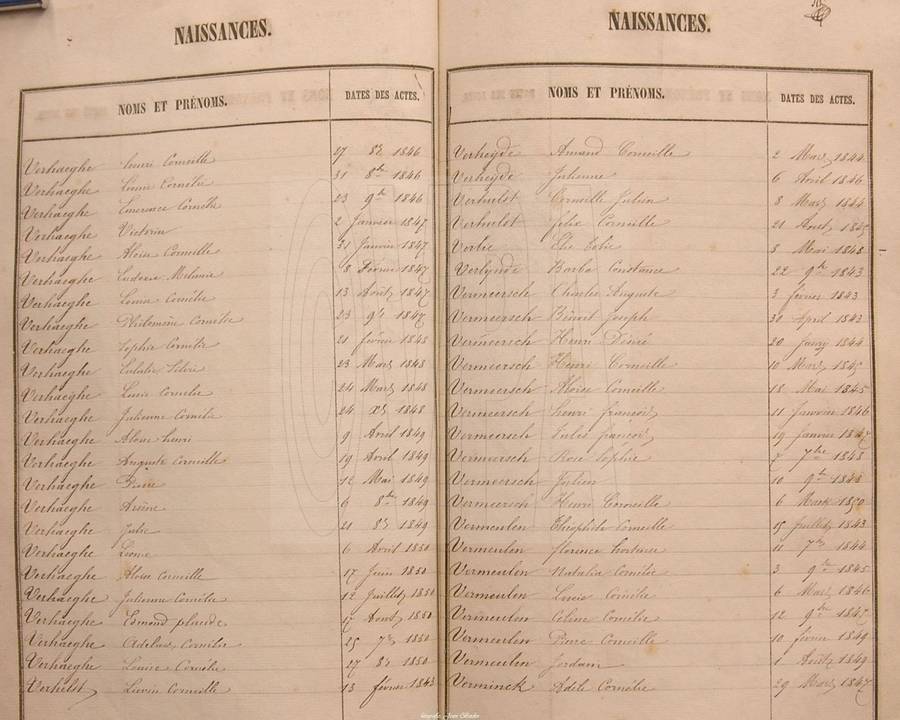 NAISSANCES.
NOMS ET PRÉNOMS. DATES DES ACTES.
Verhaeghe Henri Corneille 27 8bre 1846
Verhaeghe Leonie Cornélie 31 8bre 1846
Verhaeghe Emerance Cornélie 23 9bre 1846
Verhaeghe Victorin 2 Janvier 1847
Verhaeghe Aloïse Corneille 31 Janvier 1847
Verhaeghe Ludovie Melanie 8 Février 1847
Verhaeghe Cornélie 13 Août 1847
Verhaeghe Philomène Cornélie 23 9bre 1847
Verhaeghe Sophie Cornélie 21 février 1848
Verhaeghe Silvie 23 Mars 1848
Verhaeghe Louise Cornélie 24 Mars 1848
Verhaeghe Julienne Cornélie 24 1848
Verhaeghe Aloïse henri 9 Avril 1849
Verhaeghe Auguste Corneille 19 Avril 1849
Verhaeghe Pierre 12 Mai 1849
Verhaeghe 6 8bre 1849
Verhaeghe Julie 21 8bre 1849
Verhaeghe Leonie 6 Avril 1850
Verhaeghe Aloïse Corneille 17 Juin 1850
Verhaeghe Julienne Cornélie 12 Juillet 1850
Verhaeghe Edmond placide 17 Août 1850
Verhaeghe Adelaïde Cornélie 25 7bre 1850
Verhaeghe Louise Cornélie 27 8bre 1850
Verhulst Livin Corneille 13 février 1843
NAISSANCES.
NOMS ET PRÉNOMS. DATES DES ACTES.
Verheyde Amand Corneille 2 Mars 1844
Verheyde Julienne 6 Avril 1846
Verhulst Corneille Julien 8 Mars 1844
Verhulst felix Corneille 21 Août 1845
8 Mai 1848
Verlynde Barbe Constance 22 9bre 1843
Vermeersch Charles Auguste 3 février 1843
Vermeersch Benoit Joseph 30 April 1843
Vermeersch Henri Désiré 20 Janvr 1844
Vermeersch Henri Corneille 10 Mars 1845
Vermeersch Aloïse Corneille 18 Mai 1845
Vermeersch henri françois 11 Janvier 1846
Vermeersch Jules françois 19 Janvier 1847
Vermeersch Rosé Sophie 7 7bre 1848
Vermeersch Julien 10 9bre 1848
Vermeersch Henri Corneille 6 Mars 1850
Vermeulen Théophile Corneille 15 Juillet 1843
Vermeulen florence hortense 11 7bre 1844
Vermeulen Natalia Cornélie 3 9bre 1845
Vermeulen Louis Cornélie 6 Mars 1846
Vermeulen Celine Cornélie 12 9bre 1847
Vermeulen Pierre Corneille 10 février 1849
Vermeulen Jordain 1 Août 1849
Verminck Adèle Cornélie 29 Mars 1847